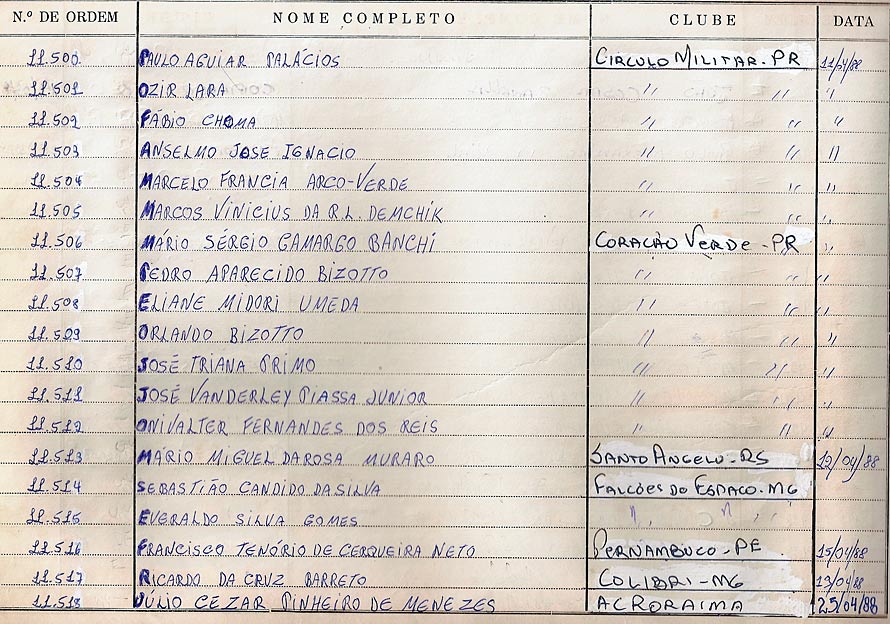 N.º DE ORDEM NOME COMPLETO CLUBE DATA
11.500 PAULO AGUIAR PALÁCIOS CÍRCULO MILITAR-PR 11/04/88
11.501 OZIR LARA " " "
11.502 FÁBIO CHOMA " " "
11.503 ANSELMO JOSE IGNACIO " " "
11.504 MARCELO FRANCIA ARCO-VERDE " " "
11.505 MARCOS VINICIUS DA R.L. DEMCHIK " " "
11.506 MÁRIO SÉRGIO CAMARGO BANCHI CORAÇÃO VERDE-PR "
11.507 PEDRO APARECIDO BIZOTTO " " "
11.508 ELIANE MIDORI UMEDA " " "
11.509 ORLANDO BIZOTTO " " "
11.510 JOSÉ TRIANA PRIMO " " "
11.511 JOSÉ VANDERLEY PIASSA JUNIOR " " "
11.512 ONIVALTER FERNANDES DOS REIS " " "
11.513 MÁRIO MIGUEL DA ROSA MURARO SANTO ANGELO-RS 12/04/88
11.514 SEBASTIÃO CANDIDO DA SILVA FALCÕES DO ESPAÇO-MG
11.515 EVERALDO SILVA GOMES " " "
11.516 FRANCISCO TENÓRIO DE CERQUEIRA NETO PERNAMBUCO-PE 15/04/88
11.517 RICARDO DA CRUZ BARRETO COLIBRI-MG 13/04/88
11.518 JÚLIO CEZAR PINHEIRO DE MENEZES ACRORAIMA 25/04/88